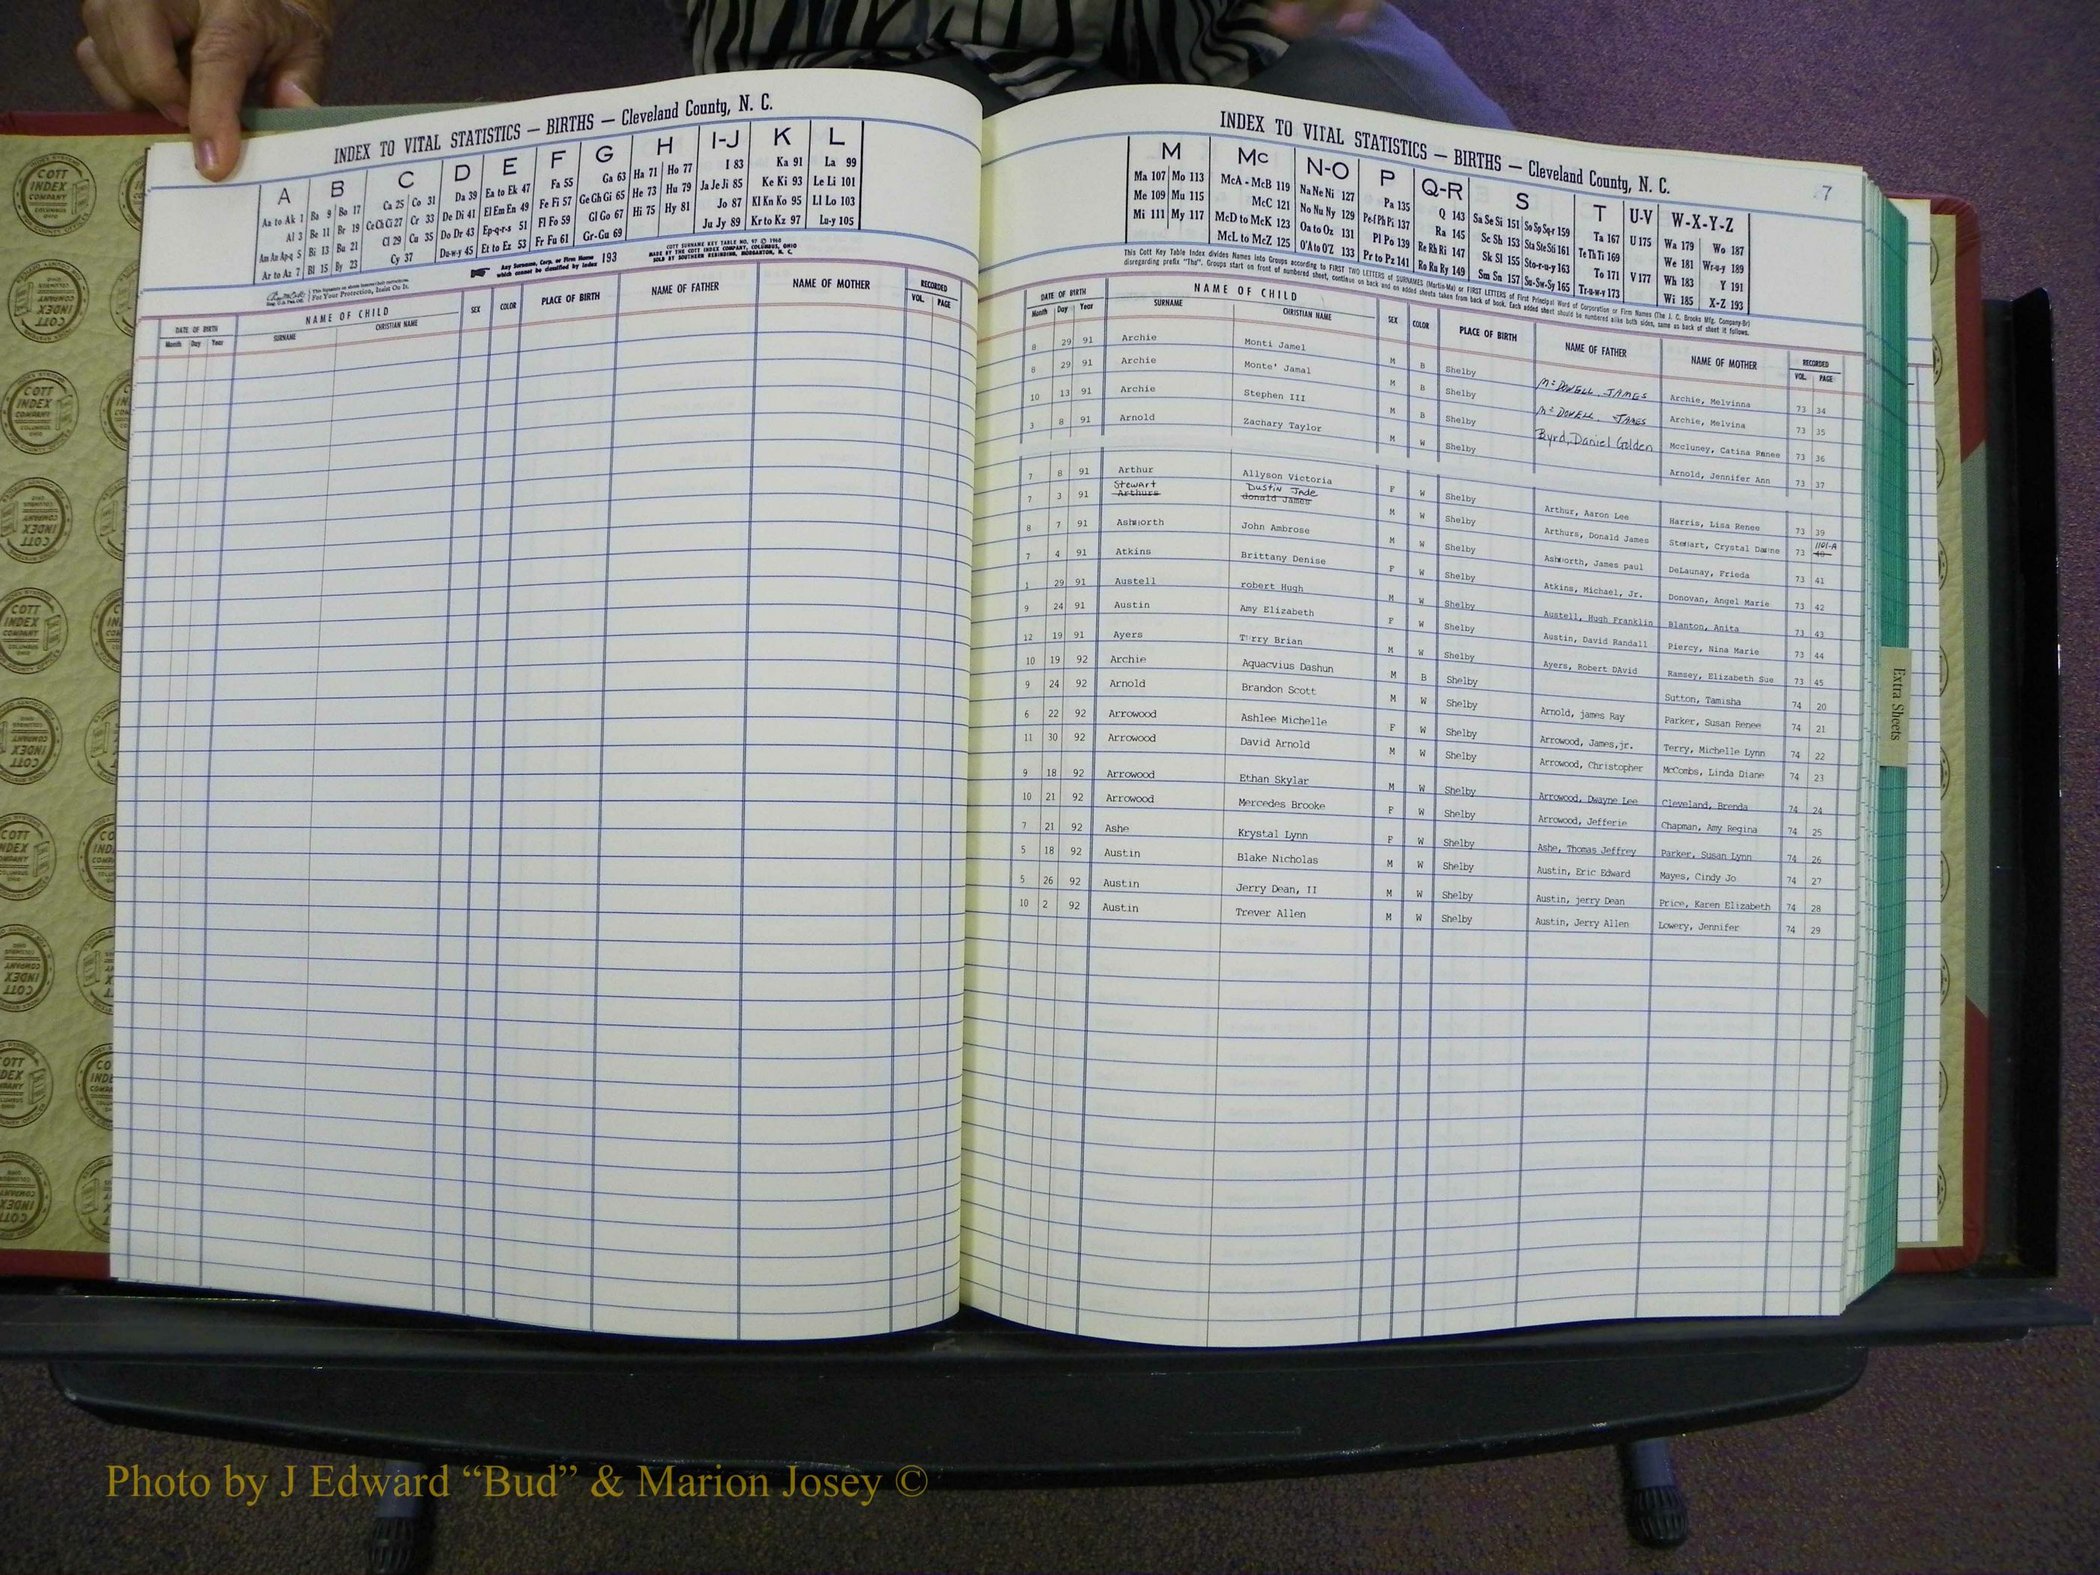 INDEX TO VITAL STATISTICS — BIRTHS — Cleveland County, N. C.
A B C D E F G H I-J K L
Aa to Ak 1 Ba 9 Bo 17 Ca 25 Co 31 Da 39 Ea to Ek 47 Fa 55 Ga 63 Ha 71 Ho 77 I 83 Ka 91 La 99
Al 3 Be 11 Br 19 Ce Ch Ci 27 Cr 33 De Di 41 El Em En 49 Fe Fi 57 Ge Gh Gi 65 He 73 Hu 79 Ja Je Ji 85 Ke Ki 93 Le Li 101
Am An Ap-q 5 Bi 13 Bu 21 Cl 29 Cu 35 Do Dr 43 Ep-q-r-s 51 Fl Fo 59 Gl Go 67 Hi 75 Hy 81 Jo 87 Kl Kn Ko 95 Ll Lo 103
Ar to Az 7 Bl 15 By 23 Cy 37 Du-w-y 45 Et to Ez 53 Fr Fu 61 Gr-Gu 69 Ju Jy 89 Kr to Kz 97 Lu-y 105
Any Surname, Corp. or Firm Name which cannot be classified by index 193
COTT SURNAME KEY TABLE NO. 97 © 1960
MADE BY THE COTT INDEX COMPANY, COLUMBUS, OHIO
SOLD BY SOUTHERN REBINDING, MORGANTON, N. C.
For Your Protection, Insist On It.
DATE OF BIRTH NAME OF CHILD SEX COLOR PLACE OF BIRTH NAME OF FATHER NAME OF MOTHER RECORDED
Month Day Year SURNAME CHRISTIAN NAME VOL. PAGE
INDEX TO VITAL STATISTICS — BIRTHS — Cleveland County, N. C.
7
M Mc N-O P Q-R S T U-V W-X-Y-Z
Ma 107 Mo 113 McA - McB 119 Na Ne Ni 127 Pa 135 Q 143 Sa Se Si 151 So Sp Sq-r 159 Ta 167 U 175 Wa 179 Wo 187
Me 109 Mu 115 McC 121 No Nu Ny 129 Pe-f Ph Pi 137 Ra 145 Sc Sh 153 Sta Ste Sti 161 Te Th Ti 169 We 181 Wr-u-y 189
Mi 111 My 117 McD to McK 123 Oa to Oz 131 Pl Po 139 Re Rh Ri 147 Sk Sl 155 Sto-r-u-y 163 To 171 V 177 Wh 183 Y 191
McL to McZ 125 O'A to O'Z 133 Pr to Pz 141 Ro Ru Ry 149 Sm Sn 157 Su-Sw-Sy 165 Tr-u-w-y 173 Wi 185 X-Z 193
This Cott Key Table Index divides Names into Groups according to FIRST TWO LETTERS of SURNAMES (Martin-Ma) or FIRST LETTERS of First Principal Word of Corporation or Firm Names (The J. C. Brooks Mfg. Company-Br)
disregarding prefix "The". Groups start on front of numbered sheet, continue on back and on added sheets taken from back of book. Each added sheet should be numbered alike both sides, same as back of sheet it follows.
DATE OF BIRTH NAME OF CHILD SEX COLOR PLACE OF BIRTH NAME OF FATHER NAME OF MOTHER RECORDED
Month Day Year SURNAME CHRISTIAN NAME VOL. PAGE
8 29 91 Archie Monti Jamel M B Shelby McDOWELL, JAMES Archie, Melvinna 73 34
8 29 91 Archie Monte' Jamal M B Shelby McDOWELL, JAMES Archie, Melvina 73 35
10 13 91 Archie Stephen III M B Shelby Byrd, Daniel Golden Mccluney, Catina Renee 73 36
3 8 91 Arnold Zachary Taylor M W Shelby Arnold, Jennifer Ann 73 37
7 8 91 Arthur Allyson Victoria F W Shelby Arthur, Aaron Lee Harris, Lisa Renee 73 39
Stewart Dustin Jade 1101-A
7 3 91 Arthurs donald James M W Shelby Arthurs, Donald James Stewart, Crystal Dawne 73 40
8 7 91 Ashworth John Ambrose M W Shelby Ashworth, James paul DeLaunay, Frieda 73 41
7 4 91 Atkins Brittany Denise F W Shelby Atkins, Michael, Jr. Donovan, Angel Marie 73 42
1 29 91 Austell robert Hugh M W Shelby Austell, Hugh Franklin Blanton, Anita 73 43
9 24 91 Austin Amy Elizabeth F W Shelby Austin, David Randall Piercy, Nina Marie 73 44
12 19 91 Ayers Terry Brian M W Shelby Ayers, Robert DAvid Ramsey, Elizabeth Sue 73 45
10 19 92 Archie Aquacvius Dashun M B Shelby Sutton, Tamisha 74 20
9 24 92 Arnold Brandon Scott M W Shelby Arnold, james Ray Parker, Susan Renee 74 21
6 22 92 Arrowood Ashlee Michelle F W Shelby Arrowood, James, jr. Terry, Michelle Lynn 74 22
11 30 92 Arrowood David Arnold M W Shelby Arrowood, Christopher McCombs, Linda Diane 74 23
9 18 92 Arrowood Ethan Skylar M W Shelby Arrowood, Dwayne Lee Cleveland, Brenda 74 24
10 21 92 Arrowood Mercedes Brooke F W Shelby Arrowood, Jefferie Chapman, Amy Regina 74 25
7 21 92 Ashe Krystal Lynn F W Shelby Ashe, Thomas Jeffrey Parker, Susan Lynn 74 26
5 18 92 Austin Blake Nicholas M W Shelby Austin, Eric Edward Mayes, Cindy Jo 74 27
5 26 92 Austin Jerry Dean, II M W Shelby Austin, jerry Dean Price, Karen Elizabeth 74 28
10 2 92 Austin Trever Allen M W Shelby Austin, Jerry Allen Lowery, Jennifer 74 29
Extra Sheets
COTT INDEX COMPANY COLUMBUS OHIO
Photo by J Edward “Bud” & Marion Josey ©